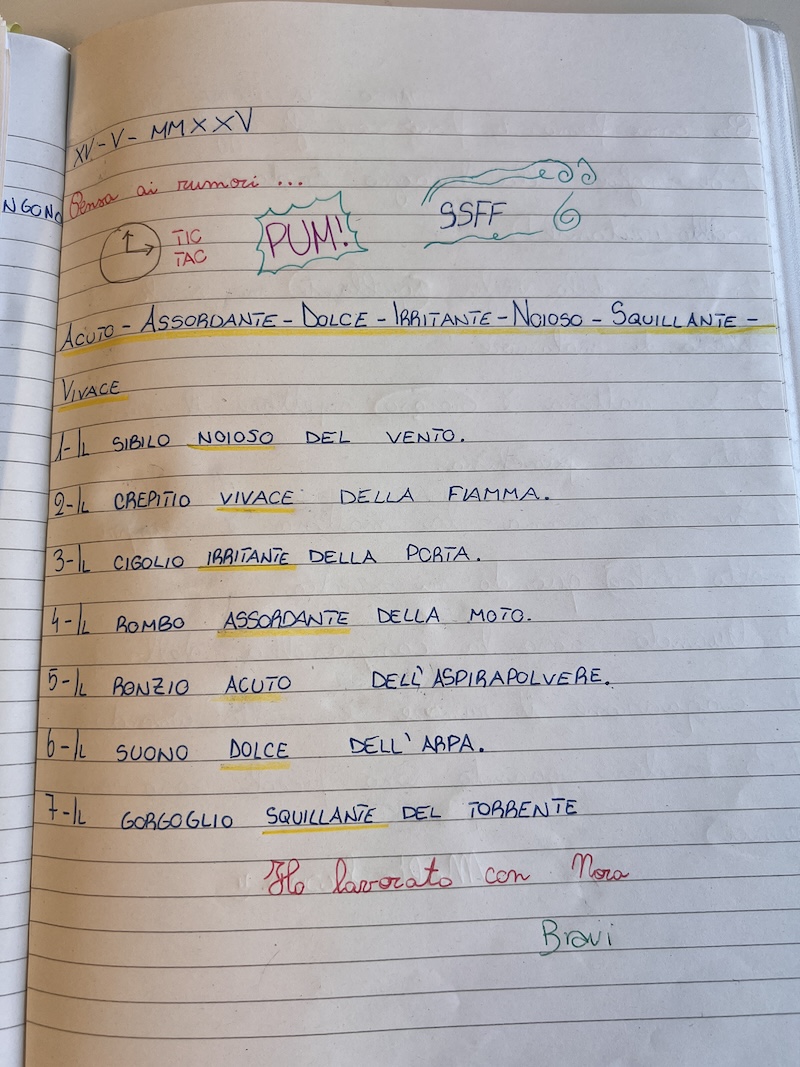 XV-V-MMXXV
NGONO
Pensa ai rumori ...
TIC
TAC
PUM!
SSFF
ACUTO - ASSORDANTE - DOLCE - IRRITANTE - NOIOSO - SQUILLANTE -
VIVACE
1-IL SIBILO NOIOSO DEL VENTO.
2-IL CREPITIO VIVACE DELLA FIAMMA.
3-IL CIGOLIO IRRITANTE DELLA PORTA.
4-IL ROMBO ASSORDANTE DELLA MOTO.
5-IL RONZIO ACUTO DELL'ASPIRAPOLVERE.
6-IL SUONO DOLCE DELL'ARPA.
7-IL GORGOGLIO SQUILLANTE DEL TORRENTE
Ho lavorato con Nora
Bravi